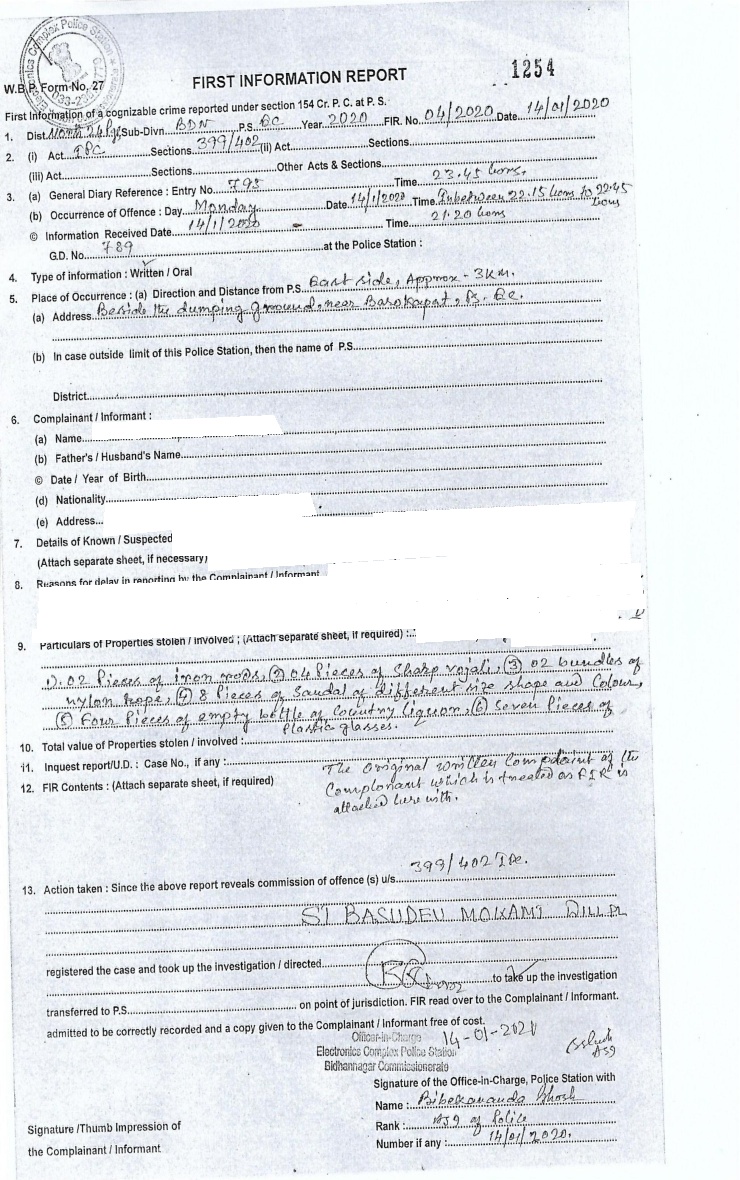 Electronics Complex Police Station
W.B.P. Form-No, 27
FIRST INFORMATION REPORT
1254
First Information of a cognizable crime reported under section 154 Cr. P. C. at P. S.
1. Dist. North 24 Pgs Sub-Divn. BDN P.S. EC Year 2020 FIR. No. 04/2020 Date 14/01/2020
2. (i) Act IPC Sections 399/402 (ii) Act Sections
(iii) Act Sections Other Acts & Sections
3. (a) General Diary Reference : Entry No. 795 Time 23.45 hours.
(b) Occurrence of Offence : Day Monday Date 14/1/2020 Time Inbetween 22.15 hours to 22.45 hours
© Information Received Date 14/1/2020 Time 21.20 hours
G.D. No. 789 at the Police Station :
4. Type of information : Written / Oral
5. Place of Occurrence : (a) Direction and Distance from P.S. East side, Approx - 3 KM.
(a) Address Beside the dumping ground, near P.S. EC.
(b) In case outside limit of this Police Station, then the name of P.S.
District
6. Complainant / Informant :
(a) Name
(b) Father's / Husband's Name
© Date / Year of Birth
(d) Nationality
(e) Address
7. Details of Known / Suspected
(Attach separate sheet, if necessary)
8. Reasons for delay in reporting by the Complainant / Informant
9. Particulars of Properties stolen / involved ; (Attach separate sheet, if required) :
1). 02 Pieces of iron rods, (2) 04 Pieces of Sharp vojali, (3) 02 bundles of
nylon rope, (4) 8 Pieces of Sandal of different size shape and Colour,
(5) Four Pieces of empty bottle of Country liquor, (6) Seven Pieces of
Plastic glasses.
10. Total value of Properties stolen / involved :
11. Inquest report/U.D. : Case No., if any :
12. FIR Contents : (Attach separate sheet, if required)
The Original written Complaint of the
Complainant which is treated as FIR is
attached here with.
13. Action taken : Since the above report reveals commission of offence (s) u/s 399/402 IPC.
SI BASUDEV MOKAMI
registered the case and took up the investigation / directed
to take up the investigation
transferred to P.S. on point of jurisdiction. FIR read over to the Complainant / Informant.
admitted to be correctly recorded and a copy given to the Complainant / Informant free of cost.
14-01-2020
Officer-in-Charge
Electronics Complex Police Station
Bidhannagar Commissionerate
ASI
Signature of the Office-in-Charge, Police Station with
Name : Bibekananda Ghosh
Rank : ASI of Police
Number if any : 14/01/2020.
Signature /Thumb Impression of
the Complainant / Informant